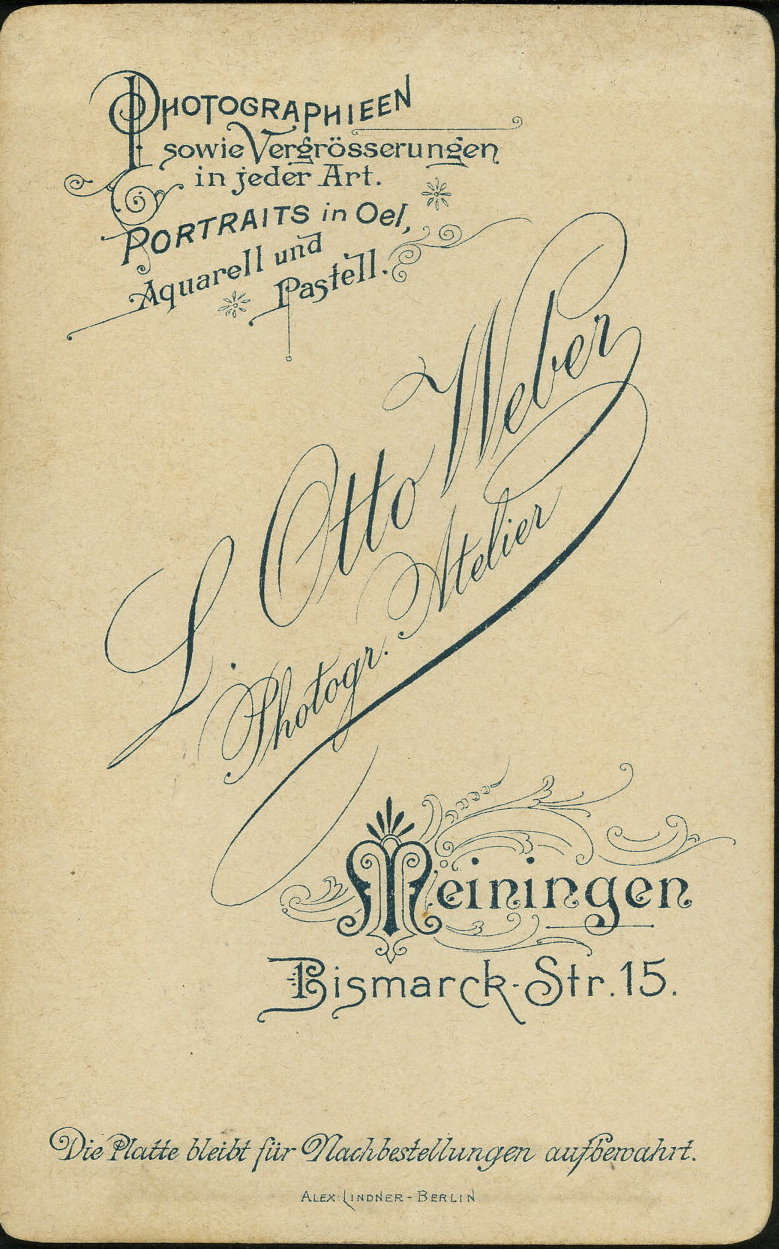 PHOTOGRAPHIEEN
sowie Vergrösserungen
in jeder Art.
PORTRAITS in Oel,
Aquarell und
Pastell.
L. Otto Weber
Photogr. Atelier
Meiningen
Bismarck-Str. 15.
Die Platte bleibt für Nachbestellungen aufbewahrt.
ALEX LINDNER - BERLIN